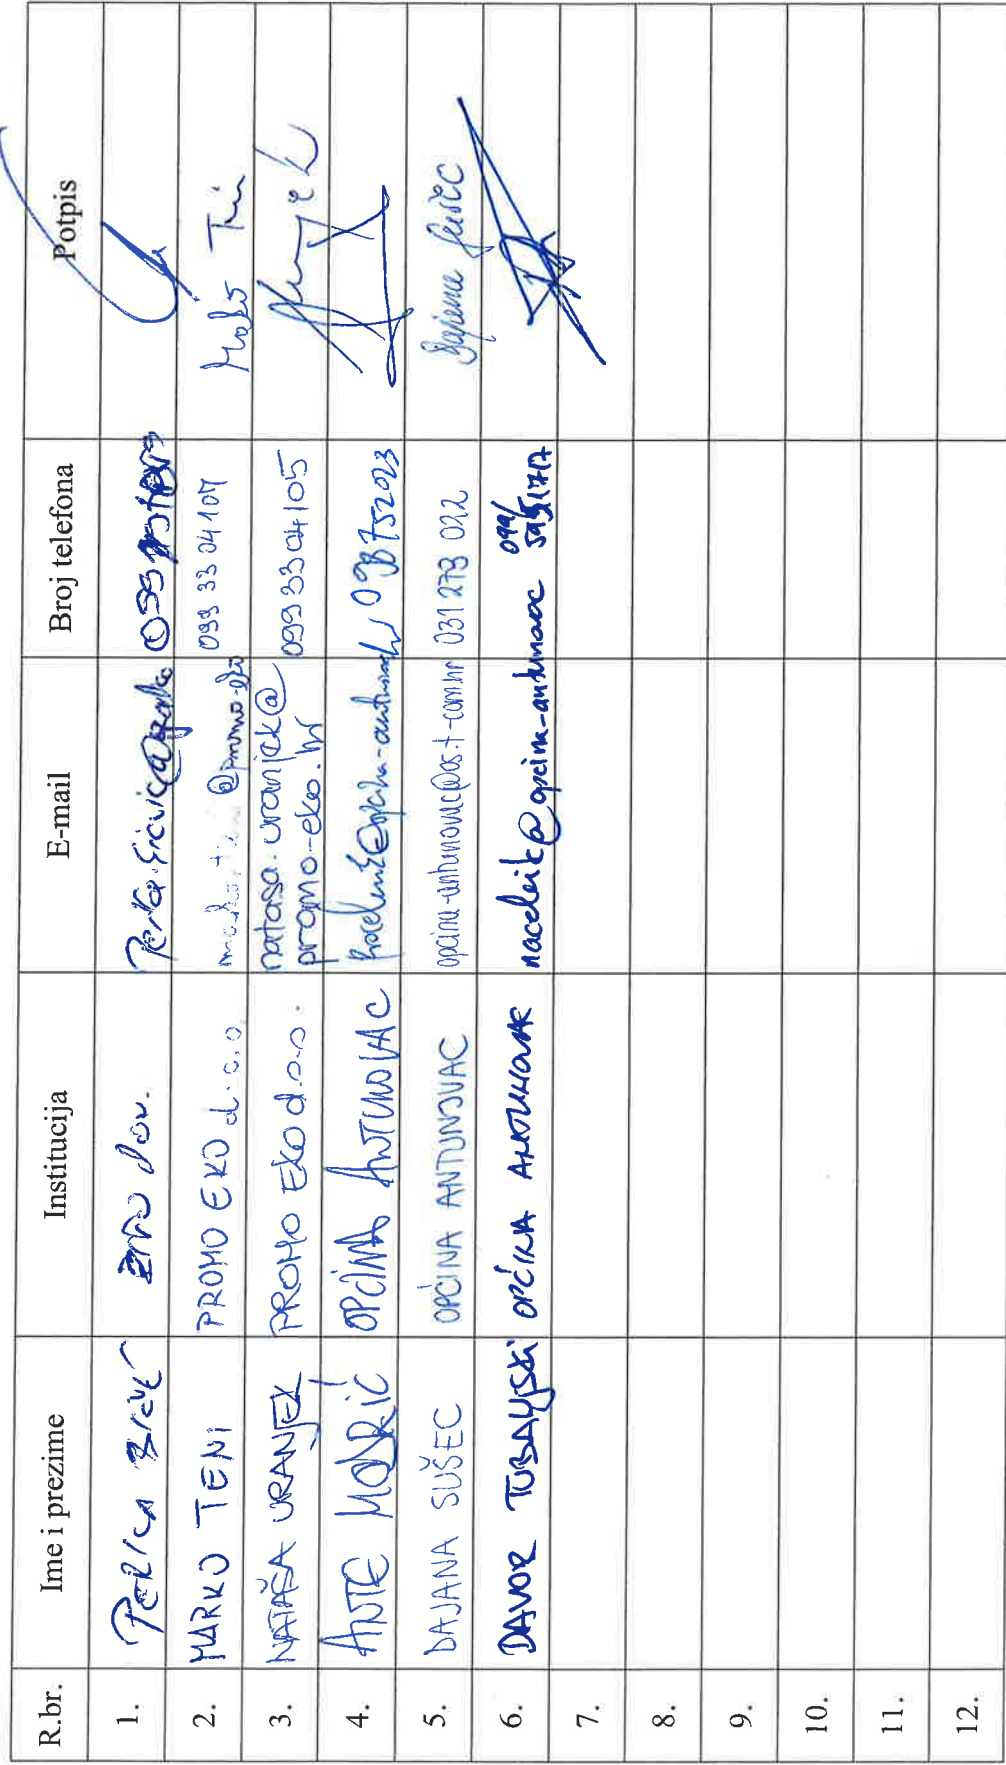 R.br. Ime i prezime Institucija E-mail Broj telefona Potpis
1. PERICA
2. MARKO TENI PROMO EKO d.o.o. 099 33 04 107 Teni
3. NATAŠA URANJEK PROMO EKO d.o.o. natasa.uranjek@
promo-eko.hr 099 33 04 105
4. ANTE MOKRIĆ OPĆINA ANTUNOVAC 098 752023
5. DAJANA SUŠEC OPĆINA ANTUNOVAC opcina-antunovac@os.t-com.hr 031 278 022 Dajana Sušec
6. DAVOR TUBANJSKI OPĆINA ANTUNOVAC nacelnik@opcina-antunovac 099/
7.
8.
9.
10.
11.
12.